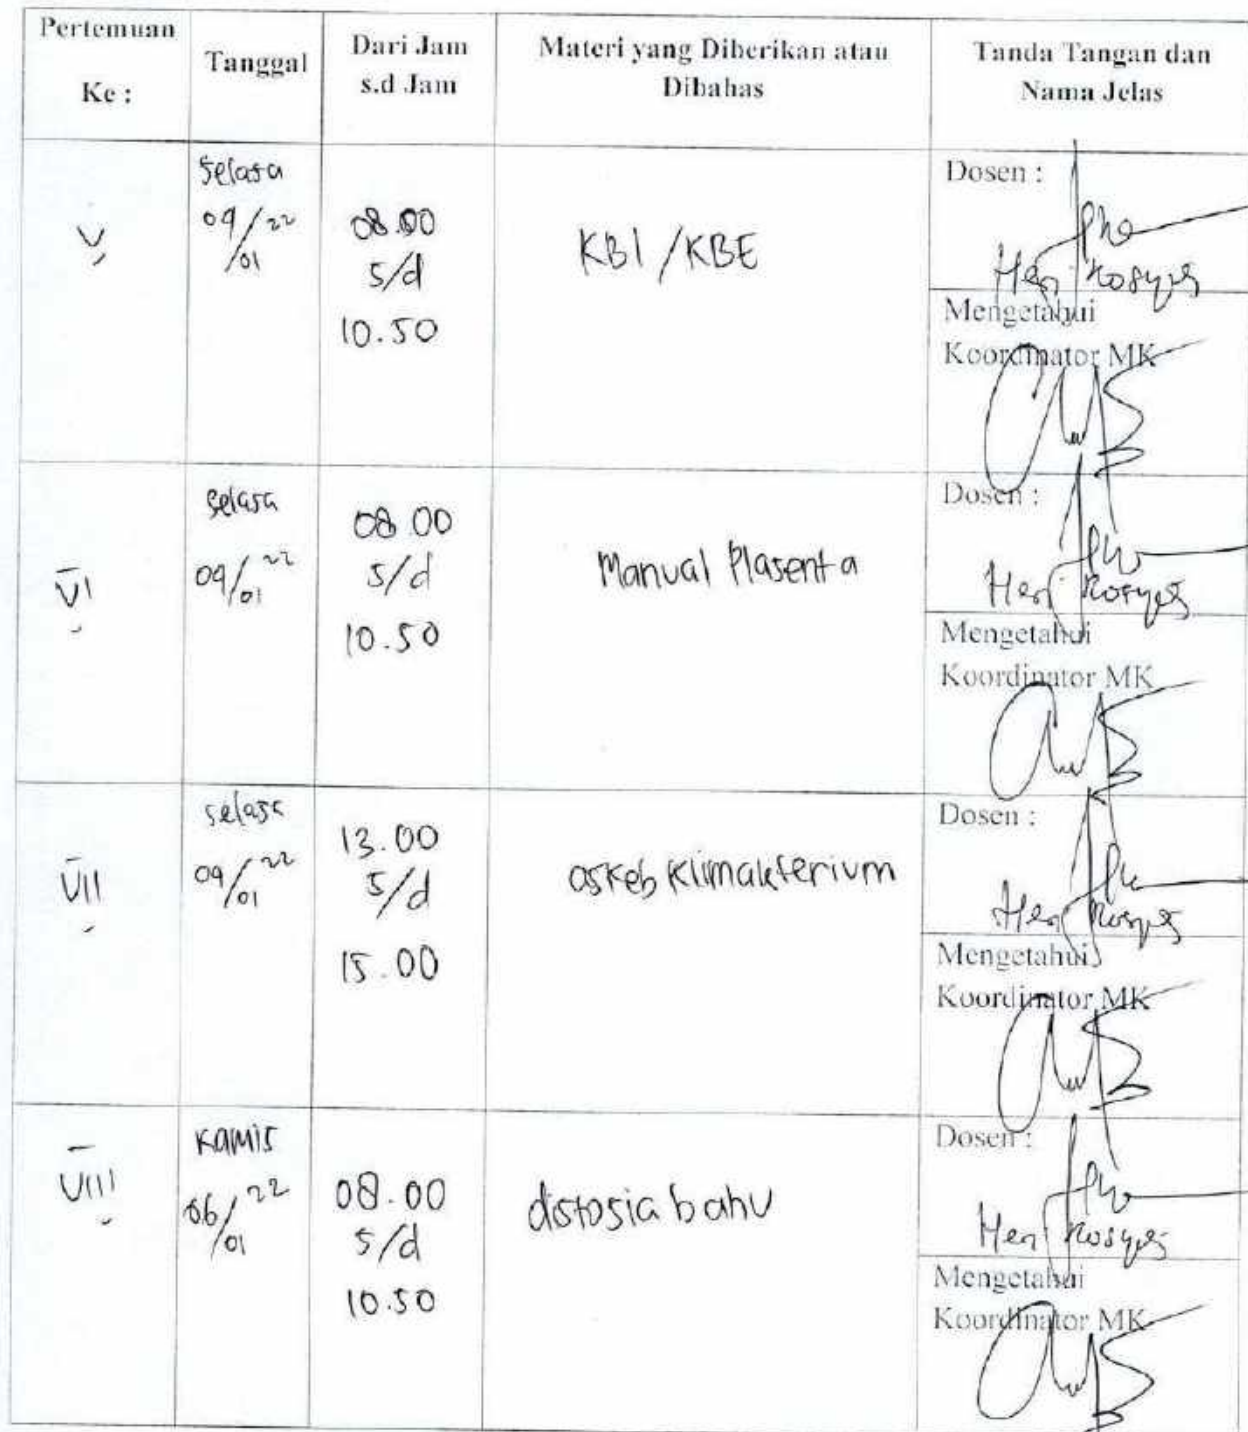 Pertemuan
Ke :
Tanggal
Dari Jam
s.d Jam
Materi yang Diberikan atau
Dibahas
Tanda Tangan dan
Nama Jelas
V
Selasa
04/01 22
08.00
s/d
10.50
KBI /KBE
Dosen :
Heri Rosyati
Mengetahui
Koordinator MK
VI
Selasa
04/01 22
08.00
s/d
10.50
Manual Plasenta
Dosen :
Heri Rosyati
Mengetahui
Koordinator MK
VII
Selasa
04/01 22
13.00
s/d
15.00
askeb klimakterium
Dosen :
Heri Rosyati
Mengetahui
Koordinator MK
VIII
Kamis
06/01 22
08.00
s/d
10.50
distosia bahu
Dosen :
Heri Rosyati
Mengetahui
Koordinator MK